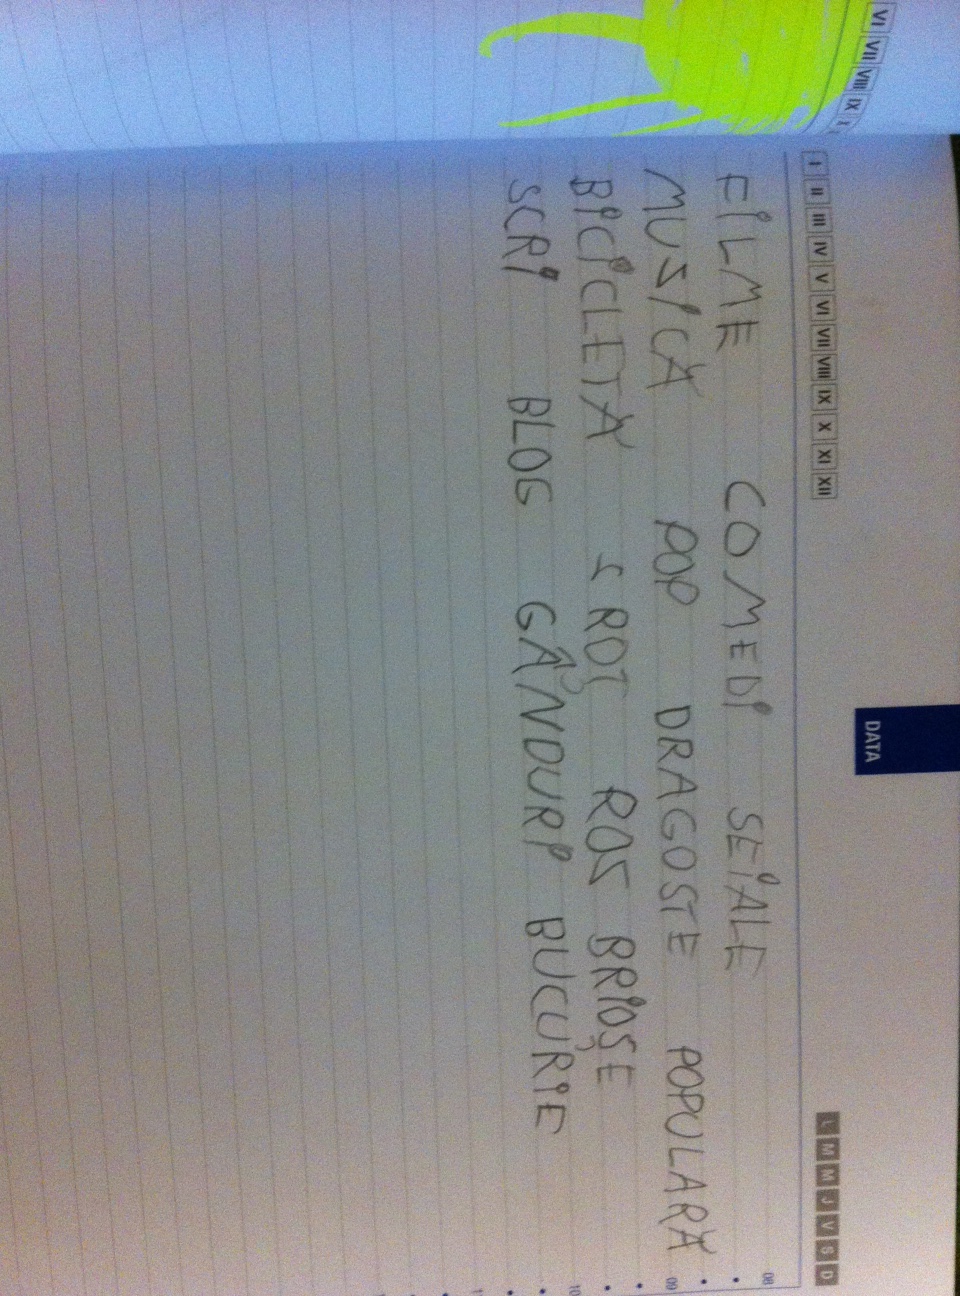 VI VII VIII IX X
I II III IV V VI VII VIII IX X XI XII
DATA
L M M J V S D
08
FILME COMEDI SEIALE
09
MUSICA POP DRAGOSTE POPULARA
BICICLETA ROȚ ROS BRIOȘE
10
SCRI BLOG GÂNDURI BUCURIE